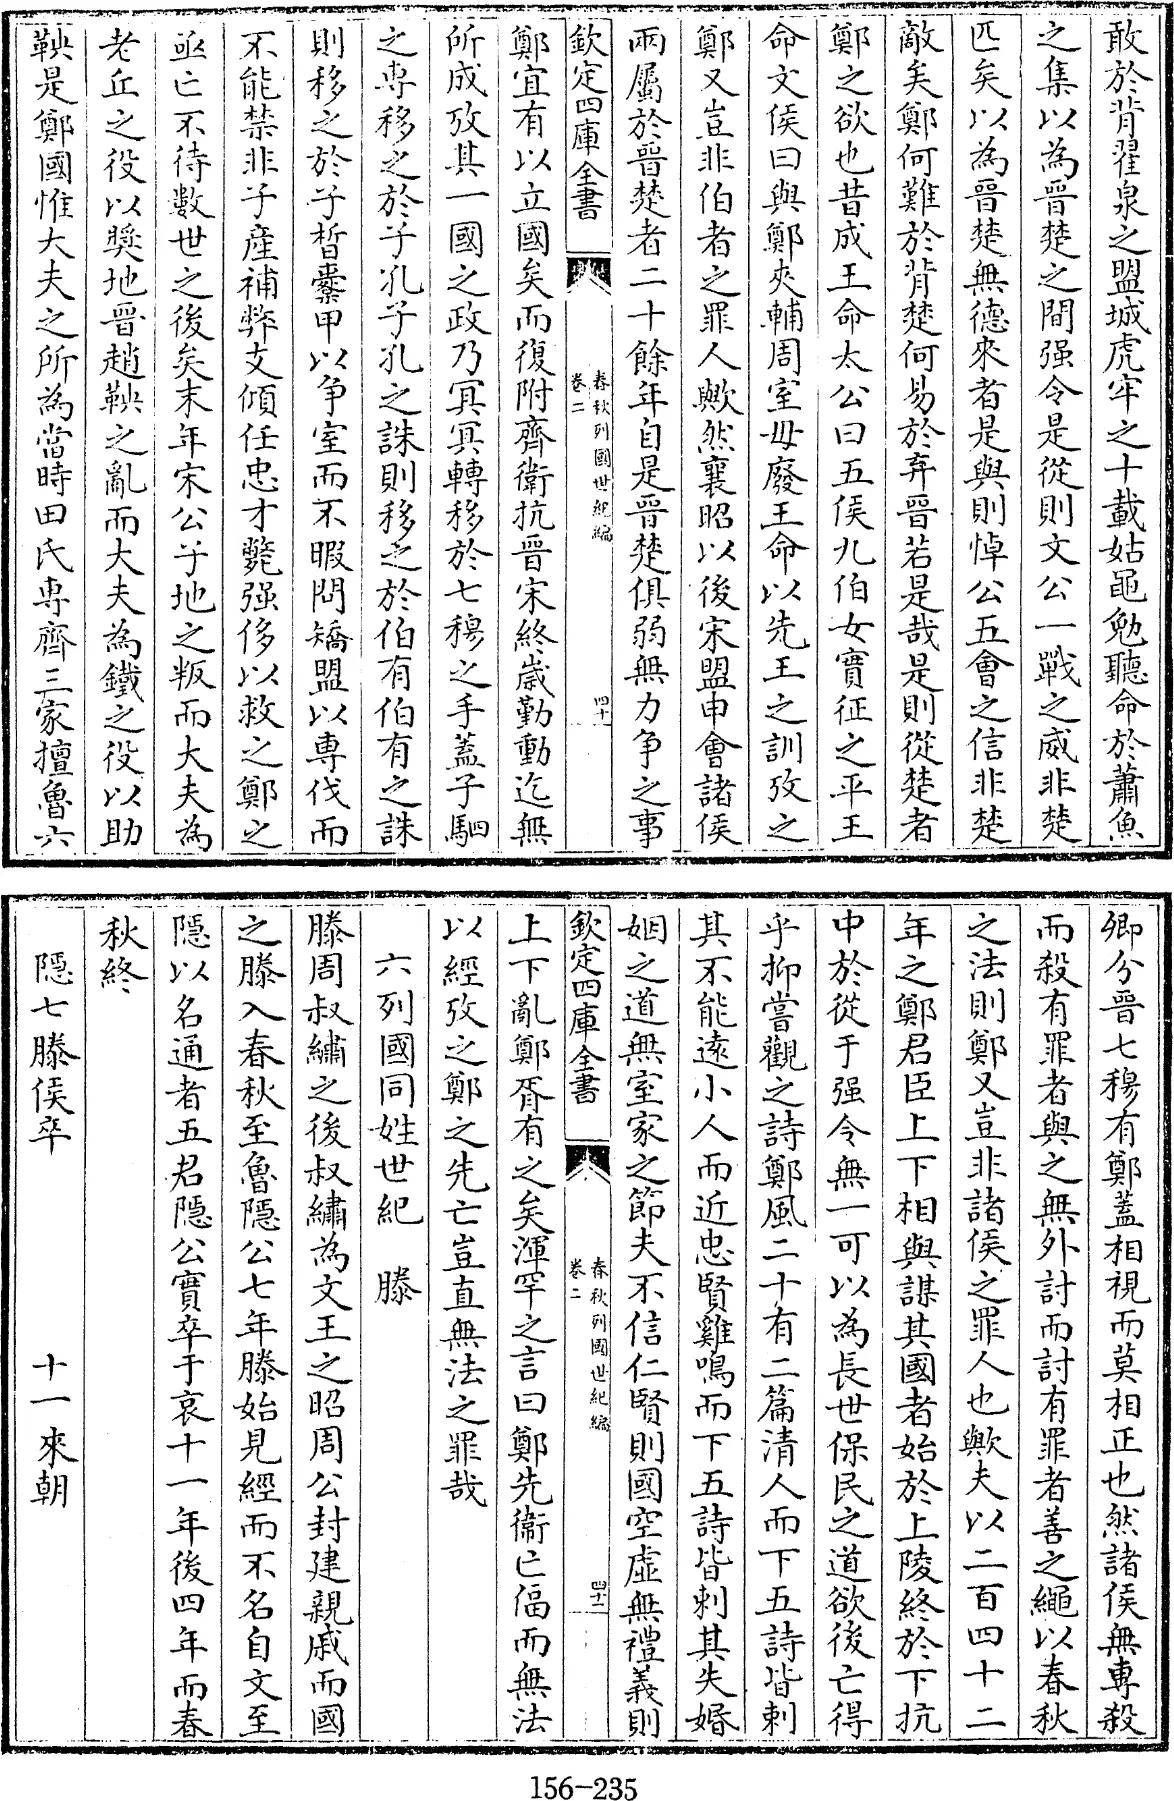 敢於背翟泉之盟城虎牢之十載姑黽勉聽命於蕭魚
之集以為晉楚之間强令是從則文公一戰之威非楚
匹矣以為晉楚無德來者是與則悼公五會之信非楚
敵矣鄭何難於背楚何易於弃晉若是哉是則從楚者
鄭之欲也昔成王命太公曰五侯九伯女實征之平王
命文侯曰與鄭夾輔周室毋廢王命以先王之訓攷之
鄭又豈非伯者之罪人歟然襄昭以後宋盟申會諸侯
兩屬於晉楚者二十餘年自是晉楚俱弱無力争之事
欽定四庫全書
春秋列國世紀編
卷二
四十一
鄭宜有以立國矣而復附齊衛抗晉宋終歲勤動迄無
所成攷其一國之政乃冥冥轉移於七穆之手蓋子駟
之専移之於子孔子孔之誅則移之於伯有伯有之誅
則移之於子晳櫜甲以争室而不暇問矯盟以専伐而
不能禁非子産補弊支傾任忠才斃强侈以救之鄭之
亟亡不待數世之後矣末年宋公子地之叛而大夫為
老丘之役以奬地晉趙鞅之亂而大夫為鐵之役以助
鞅是鄭國惟大夫之所為當時田氏専齊三家擅魯六
卿分晉七穆有鄭蓋相視而莫相正也然諸侯無専殺
而殺有罪者與之無外討而討有罪者善之繩以春秋
之法則鄭又豈非諸侯之罪人也歟夫以二百四十二
年之鄭君臣上下相與謀其國者始於上陵終於下抗
中於從于强令無一可以為長世保民之道欲後亡得
乎抑嘗觀之詩鄭風二十有二篇清人而下五詩皆刺
其不能遠小人而近忠賢雞鳴而下五詩皆刺其失婚
姻之道無室家之節夫不信仁賢則國空虛無禮義則
欽定四庫全書
春秋列國世紀編
卷二
四十二
上下亂鄭胥有之矣渾罕之言曰鄭先衞亡偪而無法
以經攷之鄭之先亡豈直無法之罪哉
六列國同姓世紀　滕
滕周叔繡之後叔繡為文王之昭周公封建親戚而國
之滕入春秋至魯隱公七年滕始見經而不名自文至
隱以名通者五君隱公實卒于哀十一年後四年而春
秋終
隱七滕侯卒　十一來朝
156-235